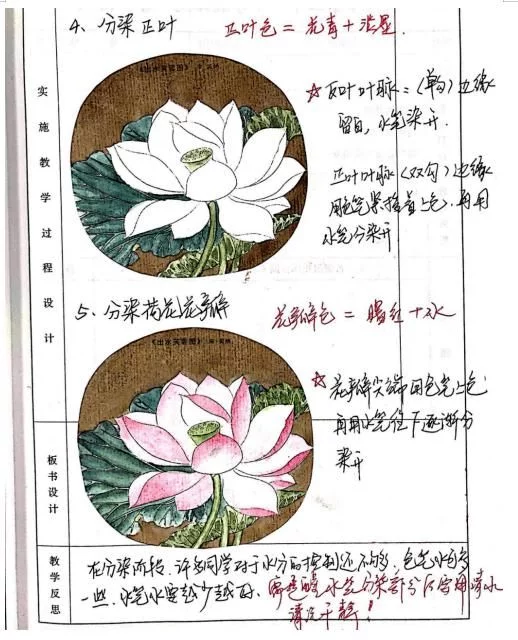 4、分染正叶
正叶色 = 花青 + 淡墨.
《出水芙蓉图》
☆ 反叶叶脉:(单勾)边缘
留白, 水笔染开.
正叶叶脉(双勾)边缘
用色笔紧挨着上色, 再用
水笔分染开
实施教学过程设计
5、分染荷花花瓣
花瓣色 = 曙红 + 水
《出水芙蓉图》
☆ 花瓣尖端用色笔上色
再用水笔往下逐渐分
染开
板书设计
教学反思
在分染阶段, 许多同学对于水分的控制还不够, 色笔水多
一些, 水笔水要越少越好.
水笔分染部分后需用清水
清洗干静!